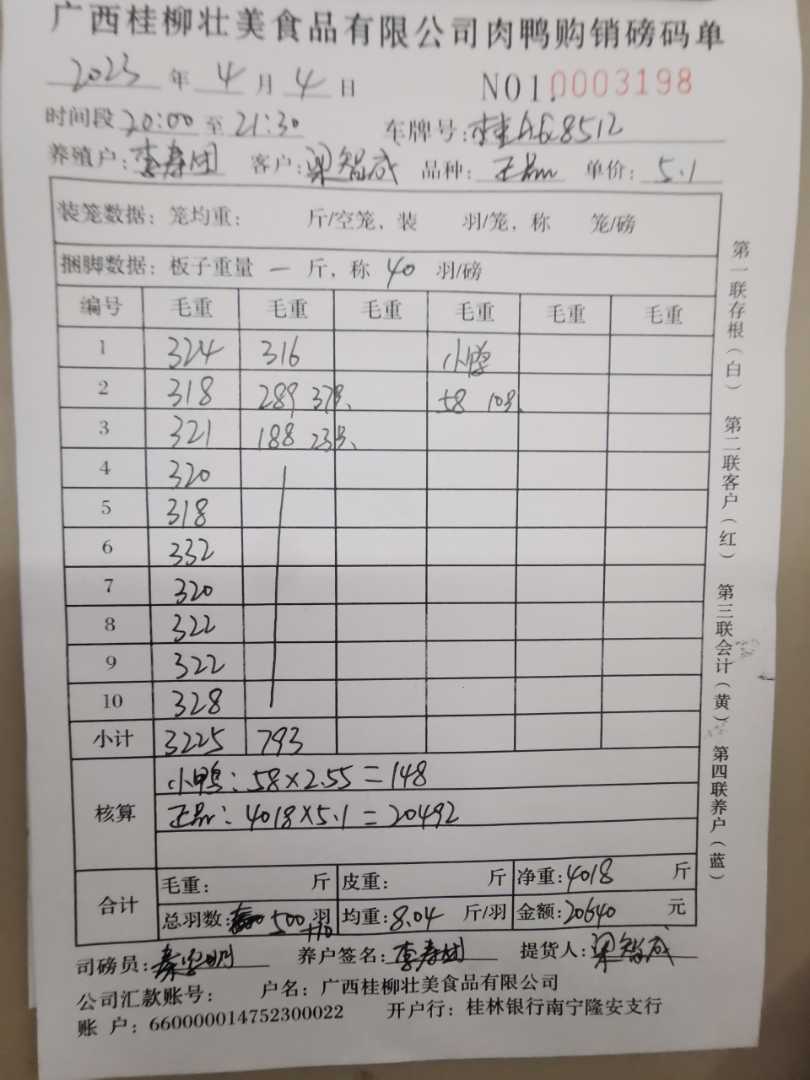 广西桂柳壮美食品有限公司肉鸭购销磅码单
2023 年 4 月 4 日 NO1.0003198
时间段 20:00 至 21:30 车牌号:桂AG8512
养殖户:李寿团 客户:梁智成 品种:正品 单价:5.1
装笼数据:笼均重: 斤/空笼,装 羽/笼,称 笼/磅
捆脚数据:板子重量 一 斤,称 40 羽/磅
编号 毛重 毛重 毛重 毛重 毛重 毛重
1 324 316 小鸭
2 318 289 37只 58 10只
3 321 188 23只
4 320
5 318
6 332
7 320
8 322
9 322
10 328
小计 3225 793
核算
小鸭:58×2.55=148
正品:4018×5.1=20492
合计
毛重: 斤 皮重: 斤 净重:4018 斤
总羽数: 500 羽 均重:8.04 斤/羽 金额:20640 元
+10
司磅员: 养户签名:李寿团 提货人:梁智成
公司汇款账号: 户名:广西桂柳壮美食品有限公司
账 户:660000014752300022 开户行:桂林银行南宁隆安支行
第一联存根(白) 第二联客户(红) 第三联会计(黄) 第四联养户(蓝)